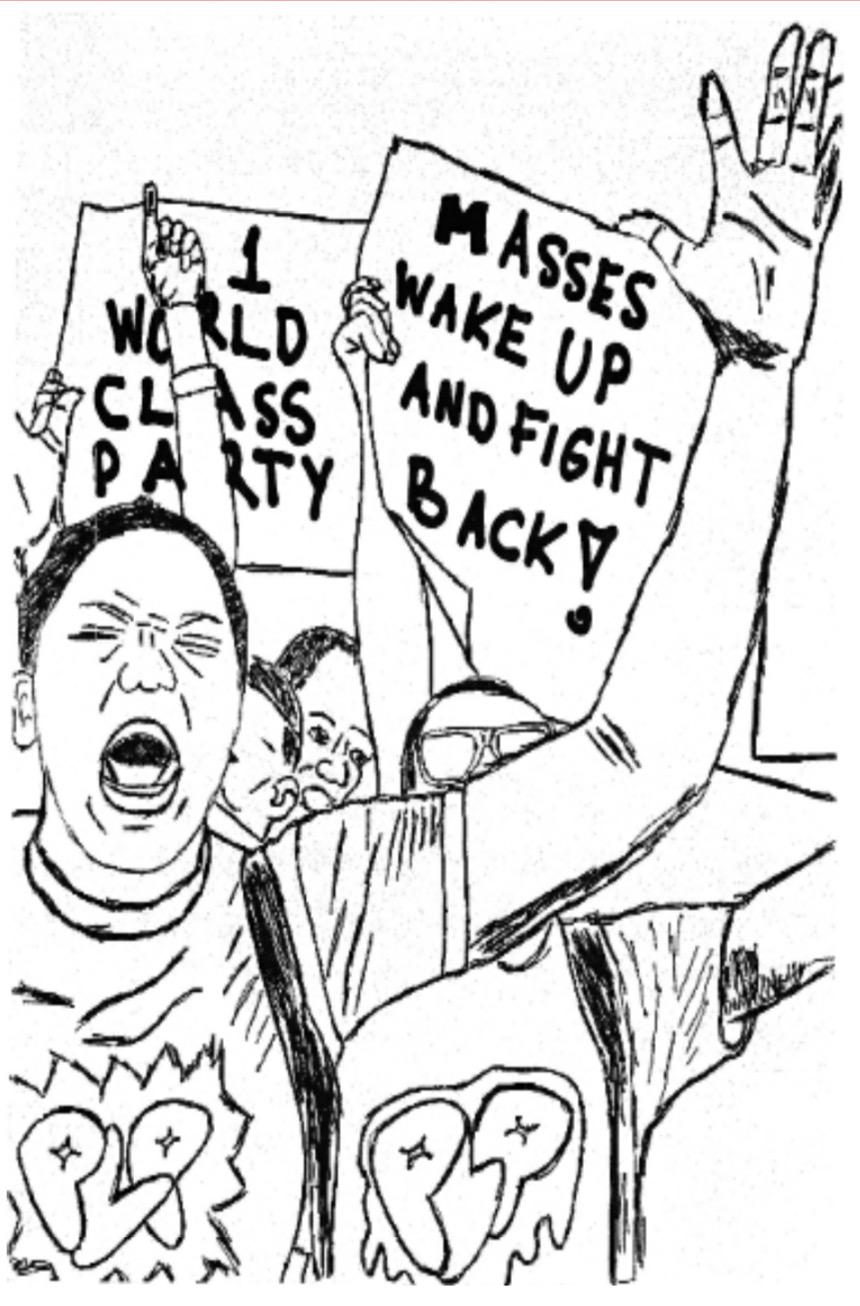 1
WORLD
CLASS
PARTY
MASSES
WAKE UP
AND FIGHT
BACK!
PLP
PLP